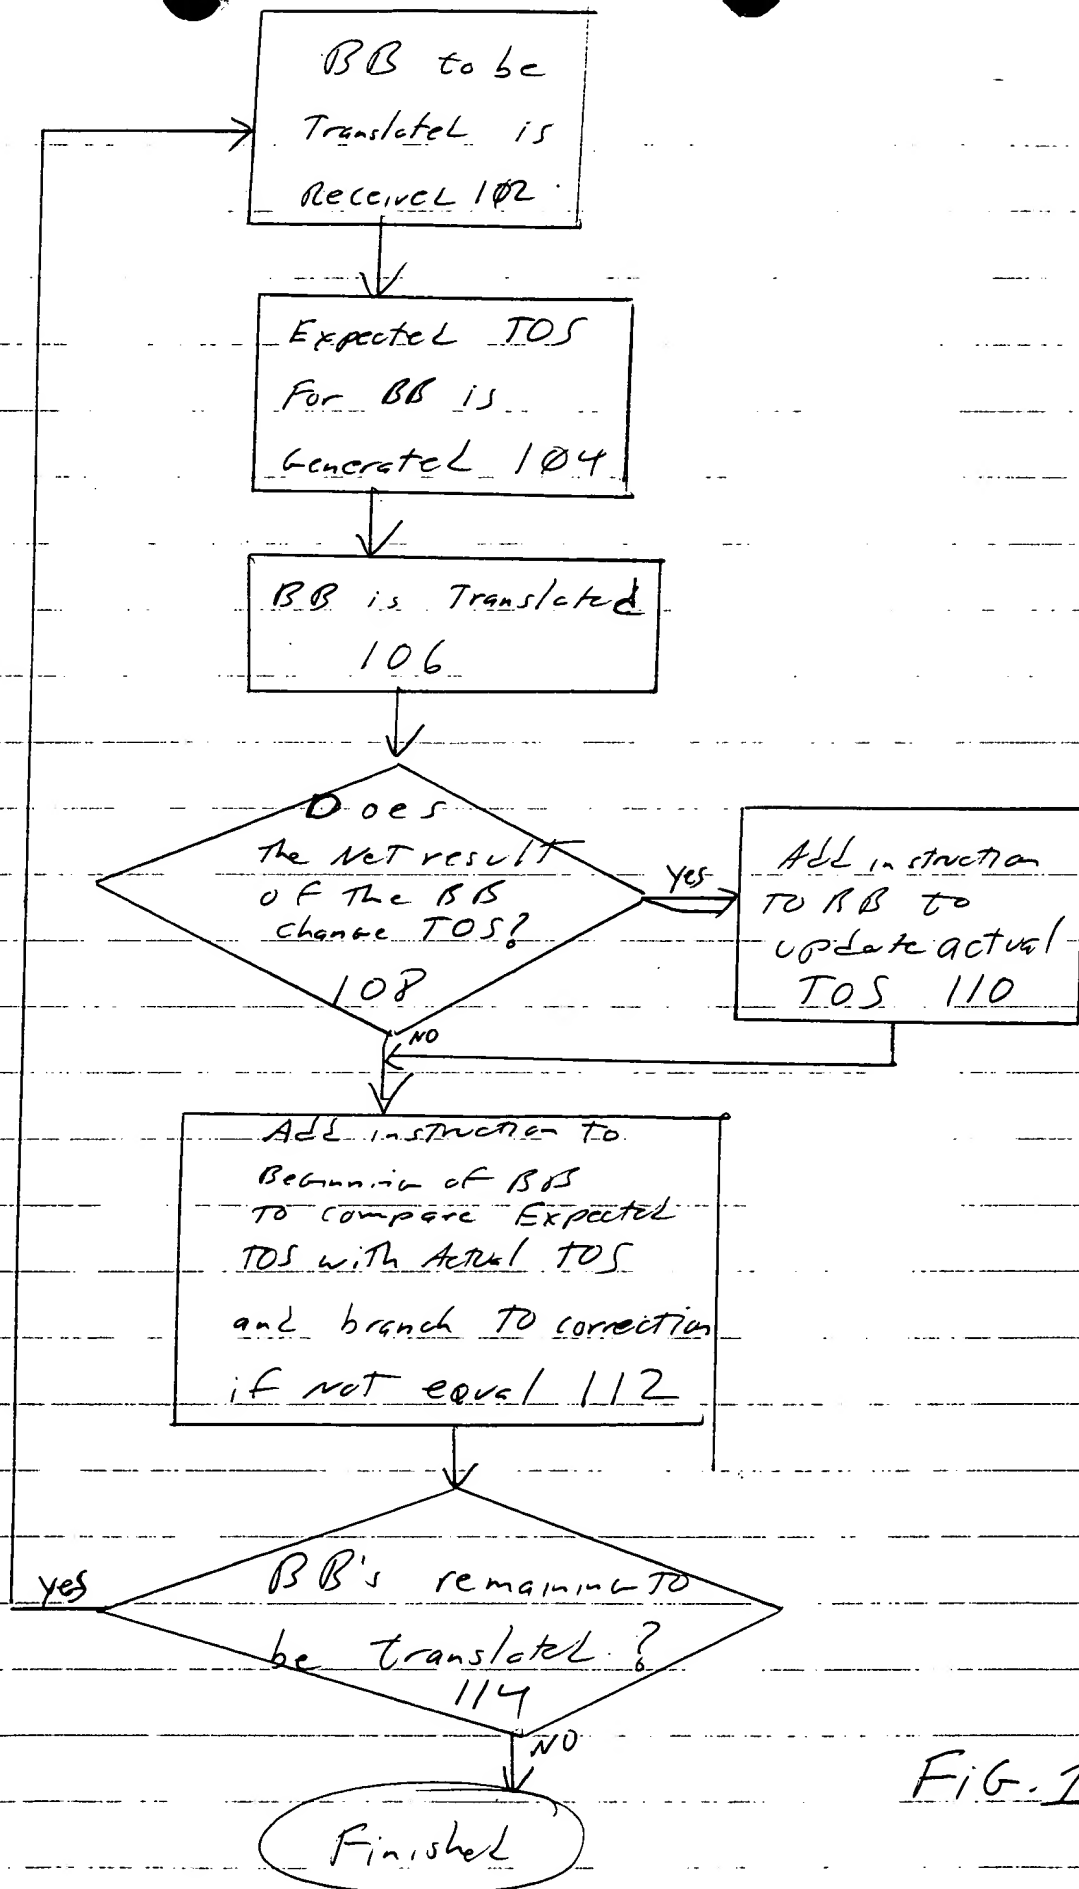 BB to be
Translated is
Received 102
Expected TOS
For BB is
Generated 104
BB is Translated
106
Does
The Net result
of The BB
change TOS?
108
yes
Add instruction
TO BB to
update actual
TOS 110
NO
Add instruction to
Beginning of BB
TO compare Expected
TOS with Actual TOS
and branch TO correction
if not equal 112
BB's remaining TO
be translated ?
114
yes
NO
Finished
FiG. 1